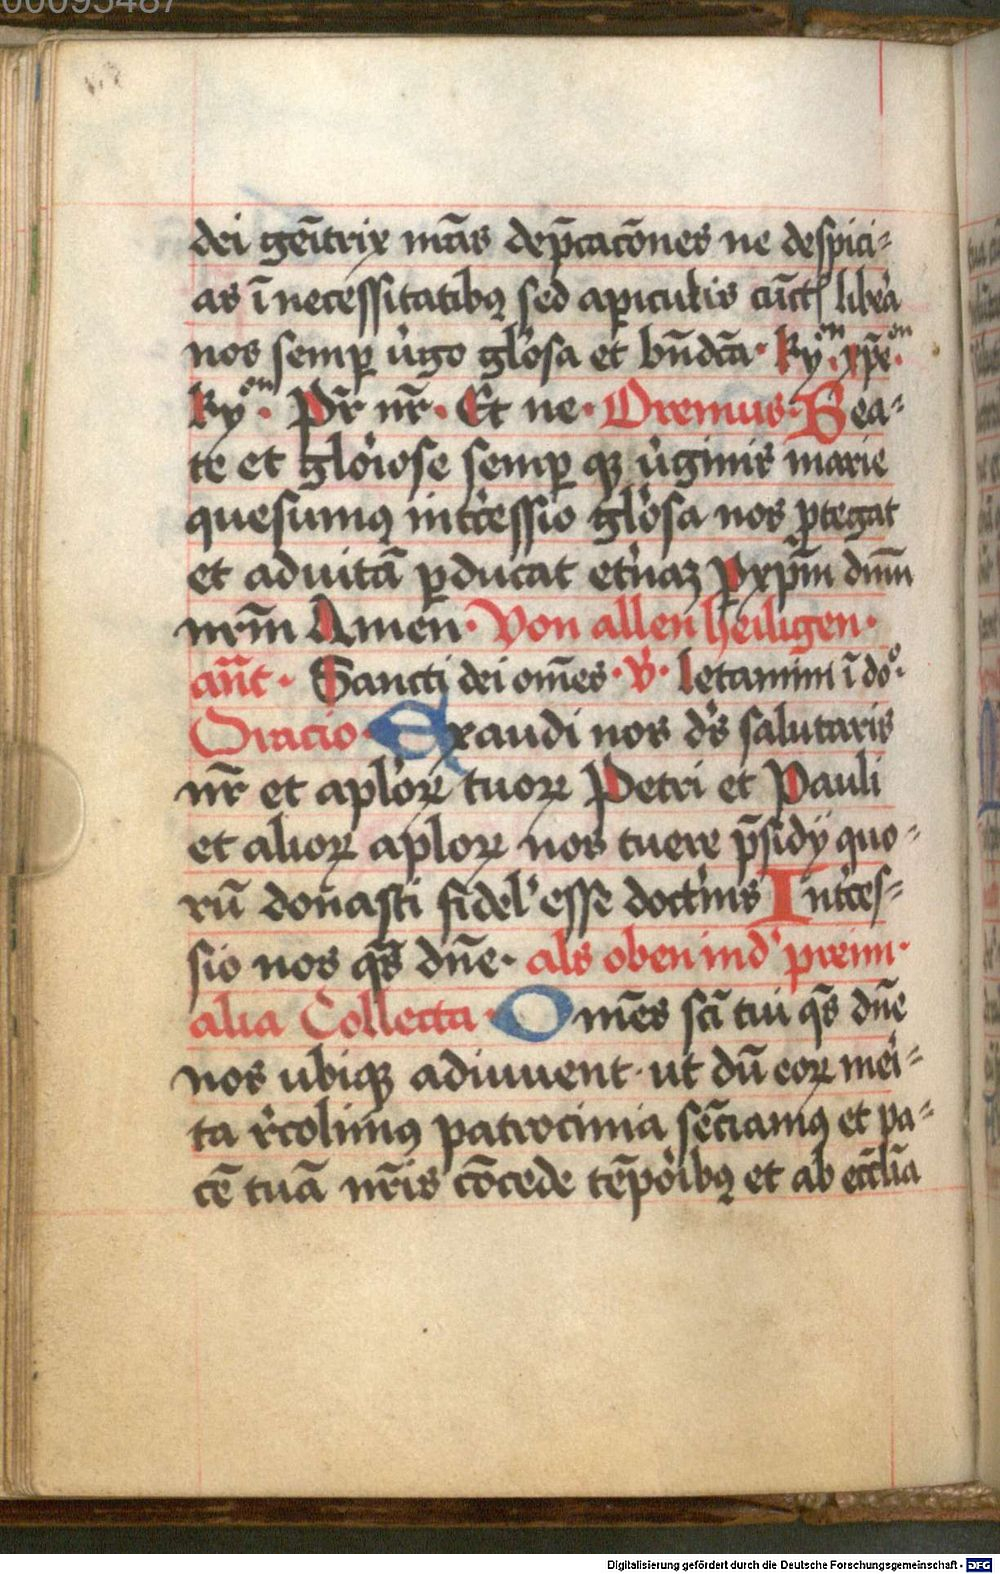 00095487
dei geñtrix nr̃as dep̃catõnes ne despici-
as ī necessitatibꝰ sed a piculis cūct͛ libe̓a
nos semp̲ v̓go glo̓sa et bn̄dc̄a · kyͤⁿ · xp̄eͤⁿ ·
kyͤⁿ · Pr̄ nr̄ · Et ne · Oremus · Bea-
te et glo̓iose semp̲ qꝫ v̓ginis marie
quesumꝰ int̓cessio glo̓sa nos ꝓtegat
et ad vitā ꝑducat et̓naꝫ ꝑ xp̄m dn̄m
nr̄m Amen · Von allen heiligen ·
añt · Sancti dei om̄es · v̓ · letamīni ī doͦ ·
Oracio · Exaudi nos ds̄ salutaris
nr̄ et aplo̓ꝝ tuoꝝ Petri et Pauli
et alioꝝ aploꝝ nos tuere p̄sidÿ quo-
rū donasti fidel̓ esse doct̓inis Int̓ces-
sio nos qs̄ dn̄e · als oben in d̓ preim ·
alia Collecta · Om̄es sc̄i tui qs̄ dn̄e
nos ubiqꝫ adiuuent · ut dū eoꝝ me̓i-
ta r̓colimꝰ patrocinia sēciamꝰ et pa-
cē tuā nr̄is cōcede tēpo̓ibꝰ et ab eccl̄ia
Digitalisierung gefördert durch die Deutsche Forschungsgemeinschaft - DFG